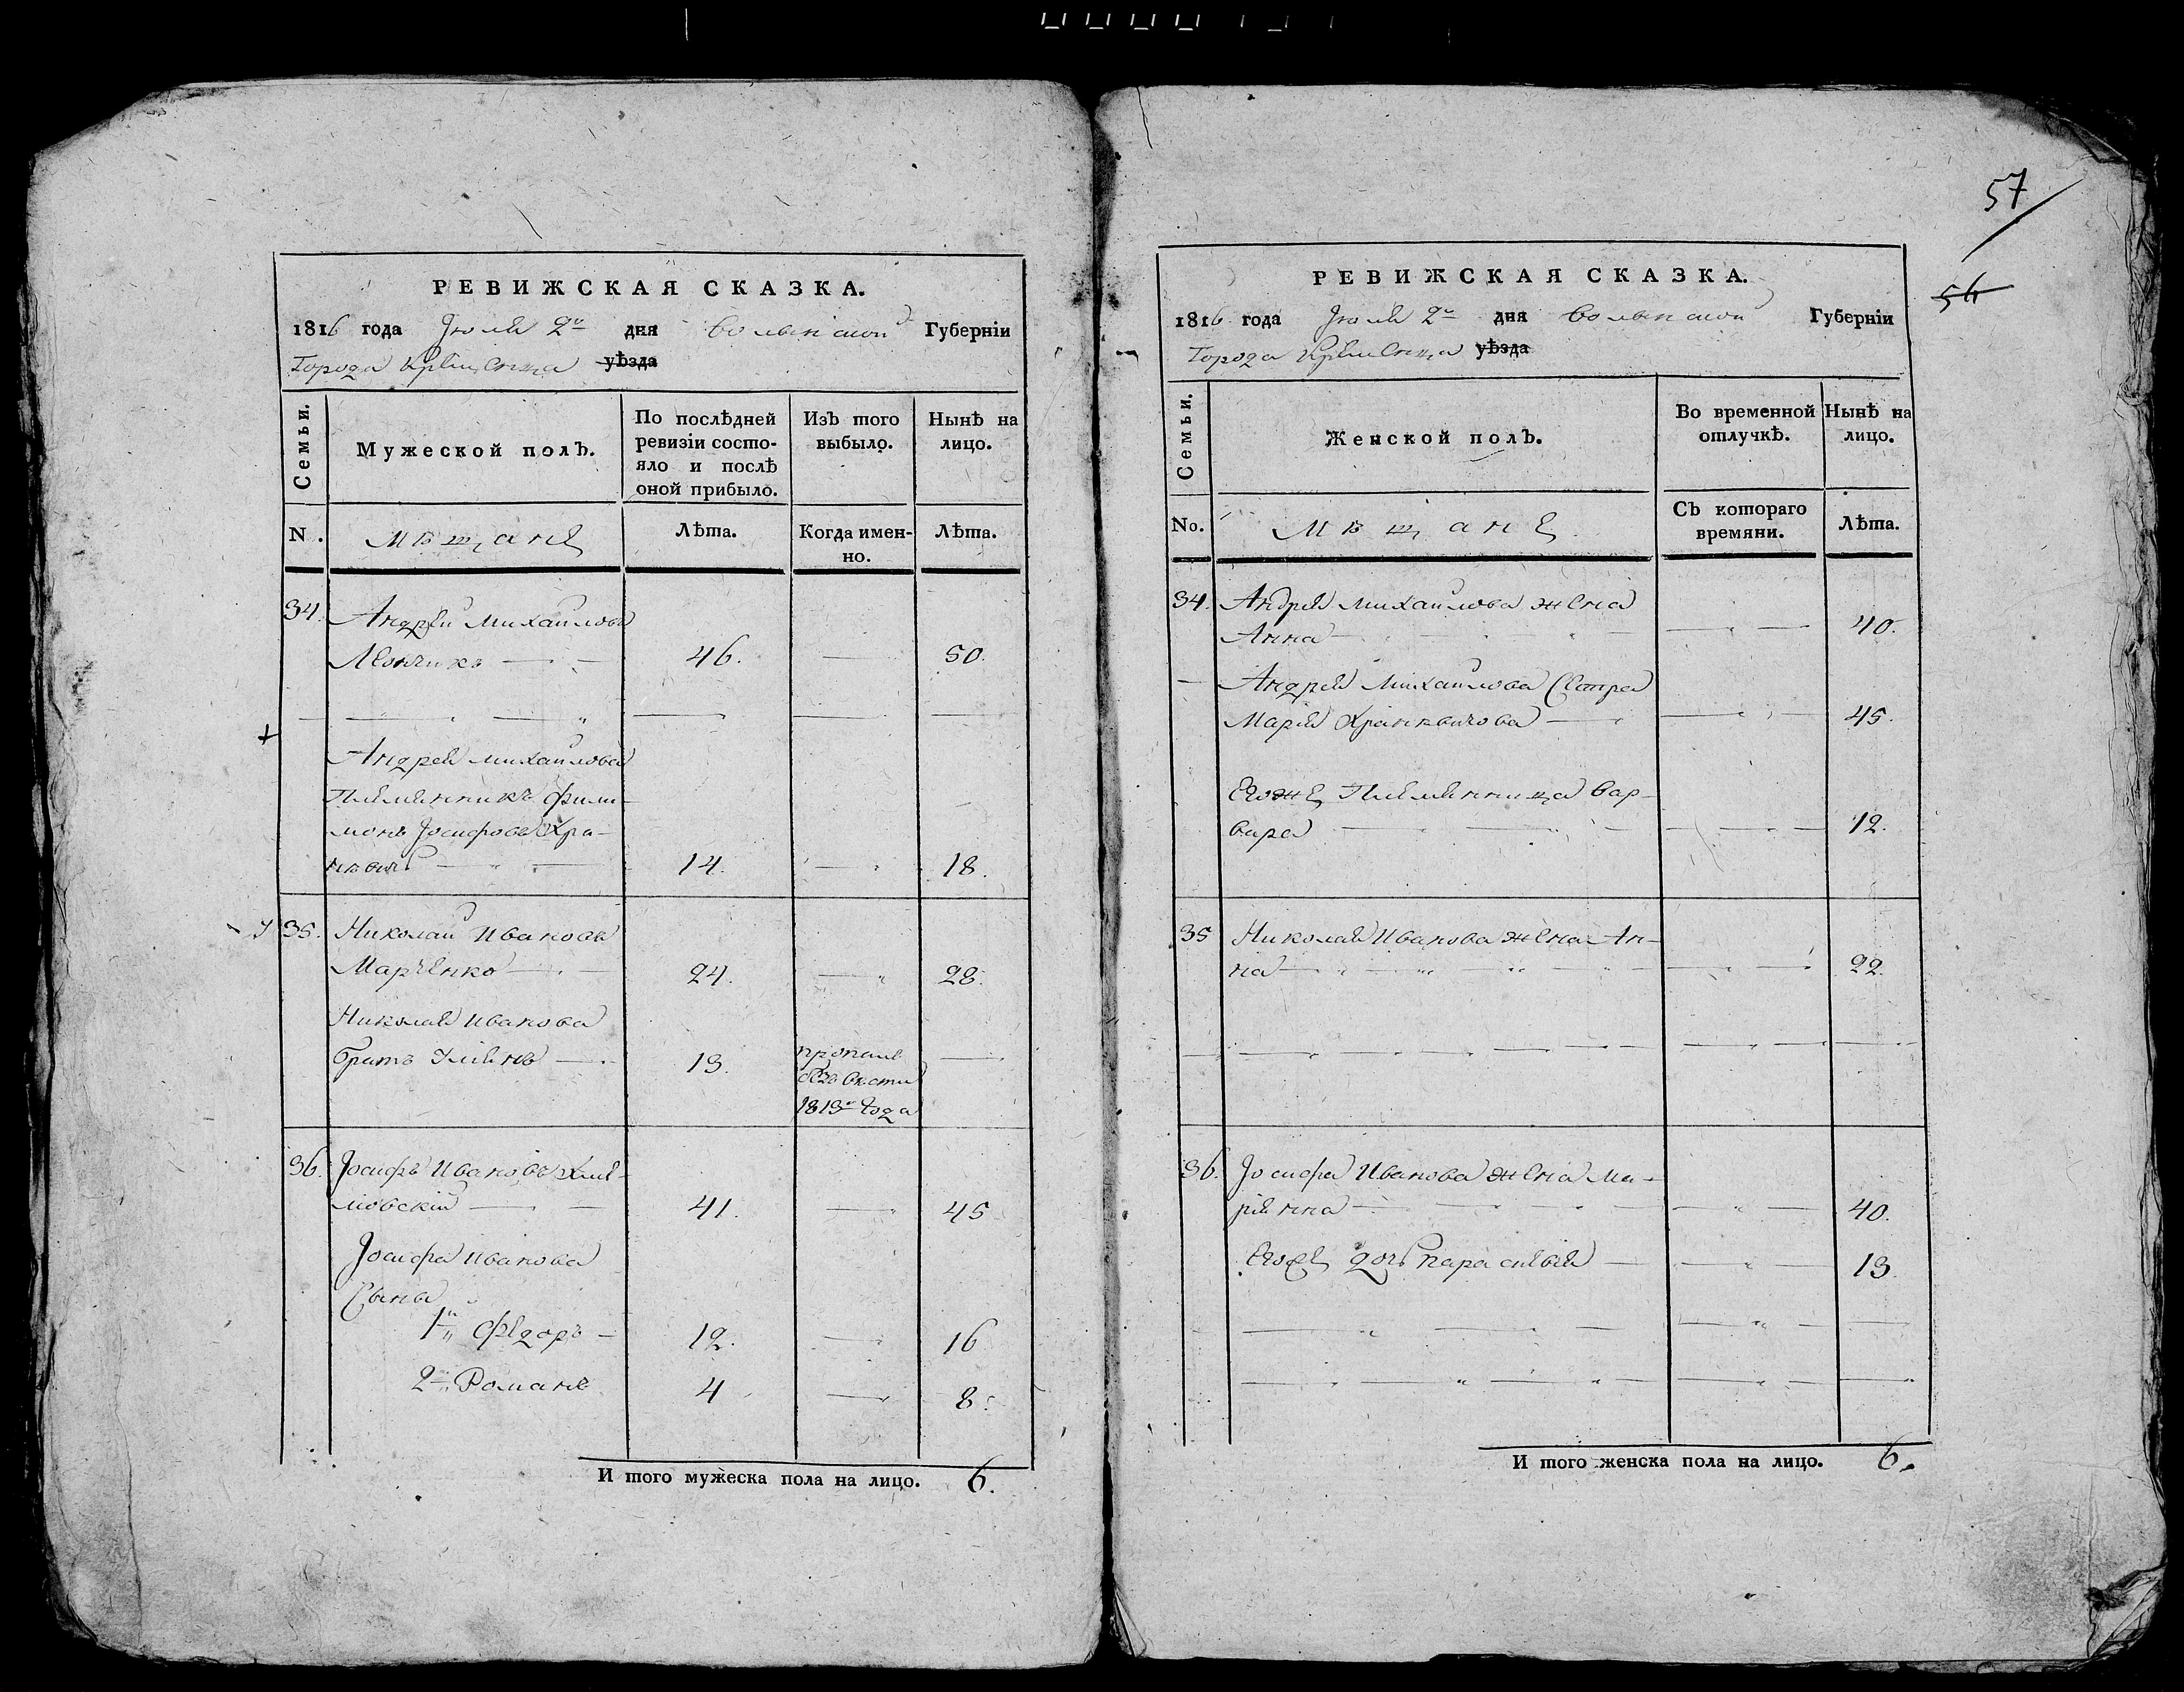 57
56
РЕВИЖСКАЯ СКАЗКА.
1816 года Іюля 2го дня Волынской Губерніи
Города Кременца уѣзда
Семьи.
Мужеской полъ.
По послѣдней ревизіи состо-
яло и послѣ
оной прибыло.
Изъ того
выбыло.
Нынѣ на
лицо.
N.
Мѣщане
Лѣта.
Когда имен-
но.
Лѣта.
34. Андрей Михайловъ
46. 50.
Андрея Михайлова
Племянникъ Фили-
монъ Іосифовъ Хра-
14. 18.
35. Николай Ивановъ
Марченко 24. 28.
Николая Иванова
братъ 13. пропалъ
безъ вести
1813го года
36. Іосифъ Ивановъ
41. 45
Іосифа Иванова
Сыны
1й Федоръ 12. 16
2й Романъ 4 8.
И того мужеска пола на лицо. 6.
РЕВИЖСКАЯ СКАЗКА.
1816 года Іюля 2го дня Волынской Губерніи
Города Кременца уѣзда
Семьи.
Женской полъ.
Во временной
отлучкѣ.
Нынѣ на
лицо.
No.
Мѣщане
Съ котораго
времяни.
Лѣта.
34. Андрея Михайлова жена
Анна 40.
Андрея Михайлова Сестра
Марія 45.
Егоже Племянница Вар-
вара 12.
35 Николая Иванова жена Ан-
на 22.
36. Іосифа Иванова жена Ма-
ріянна 40.
Егоже дочь Параскевия 13.
И того женска пола на лицо. 6.